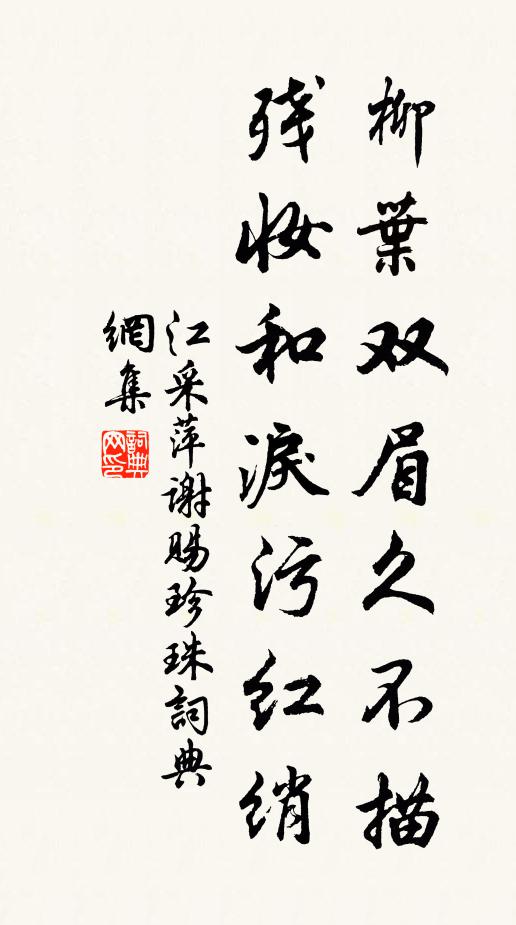 柳葉双眉久不描
残妝和淚污红绡
江采萍谢赐珍珠詞典
網集
詞典
网印